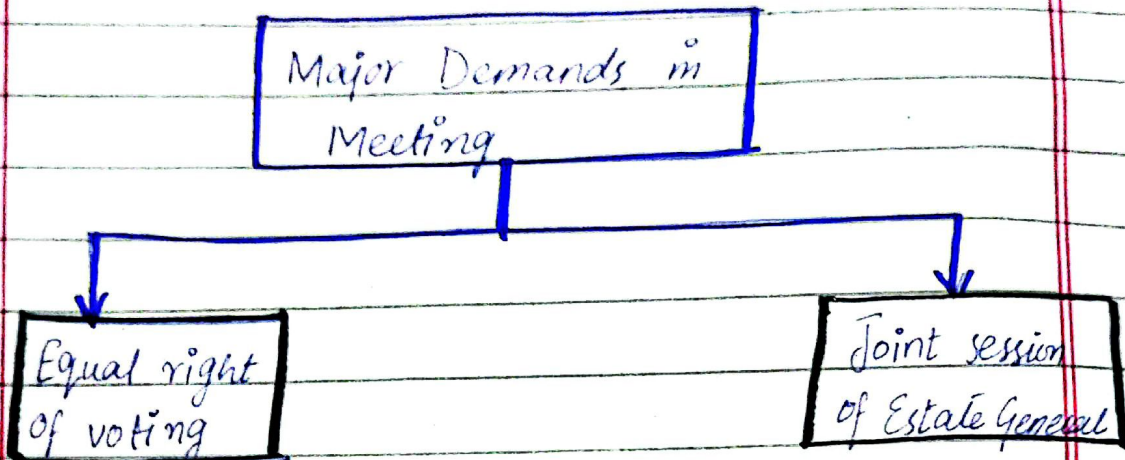 Major Demands in
Meeting
Equal right
of voting
Joint session
of Estate General